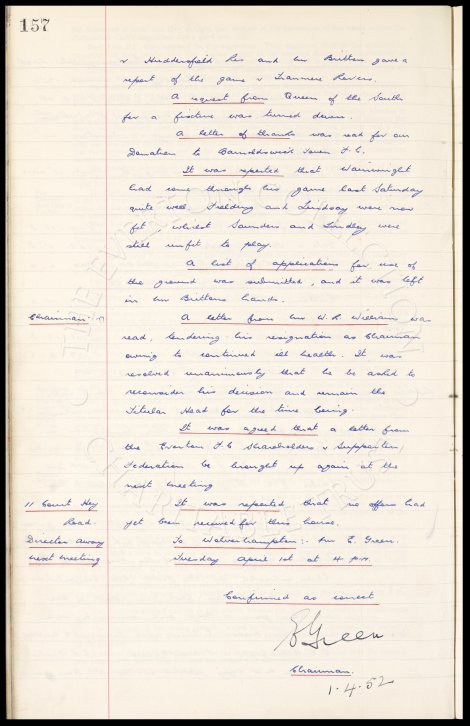 157
v Huddersfield Res and Mr Britton gave a
report of the game v Tranmere Rovers.
A request from Queen of the South
for a fixture was turned down.
A letter of thanks was read for our
Donation to Barnoldswick Town F.C.
It was reported that Wainwright
had come through his game last Saturday
quite well. Fielding and Lindsay were now
fit, whilst Saunders and Lindley were
still unfit to play.
A list of applications for use of
the ground was submitted, and it was left
in Mr Brittons hands.
Chairman:
A letter from Mr W.R. Williams was
read, tendering his resignation as Chairman
owing to continued ill health. It was
resolved unanimously that he be asked to
reconsider his decision and remain the
Titular Head for the time being.
It was agreed that a letter from
the Everton F.C Shareholders & Supporters
Federation be brought up again at the
next meeting
11 Court Hey Road
It was reported that no offers had
yet been received for this house.
Director away
To Wolverhampton:- Mr E. Green.
next meeting
Tuesday April 1st at 4 p.m.
Confirmed as correct
E Green
Chairman.
1.4.52